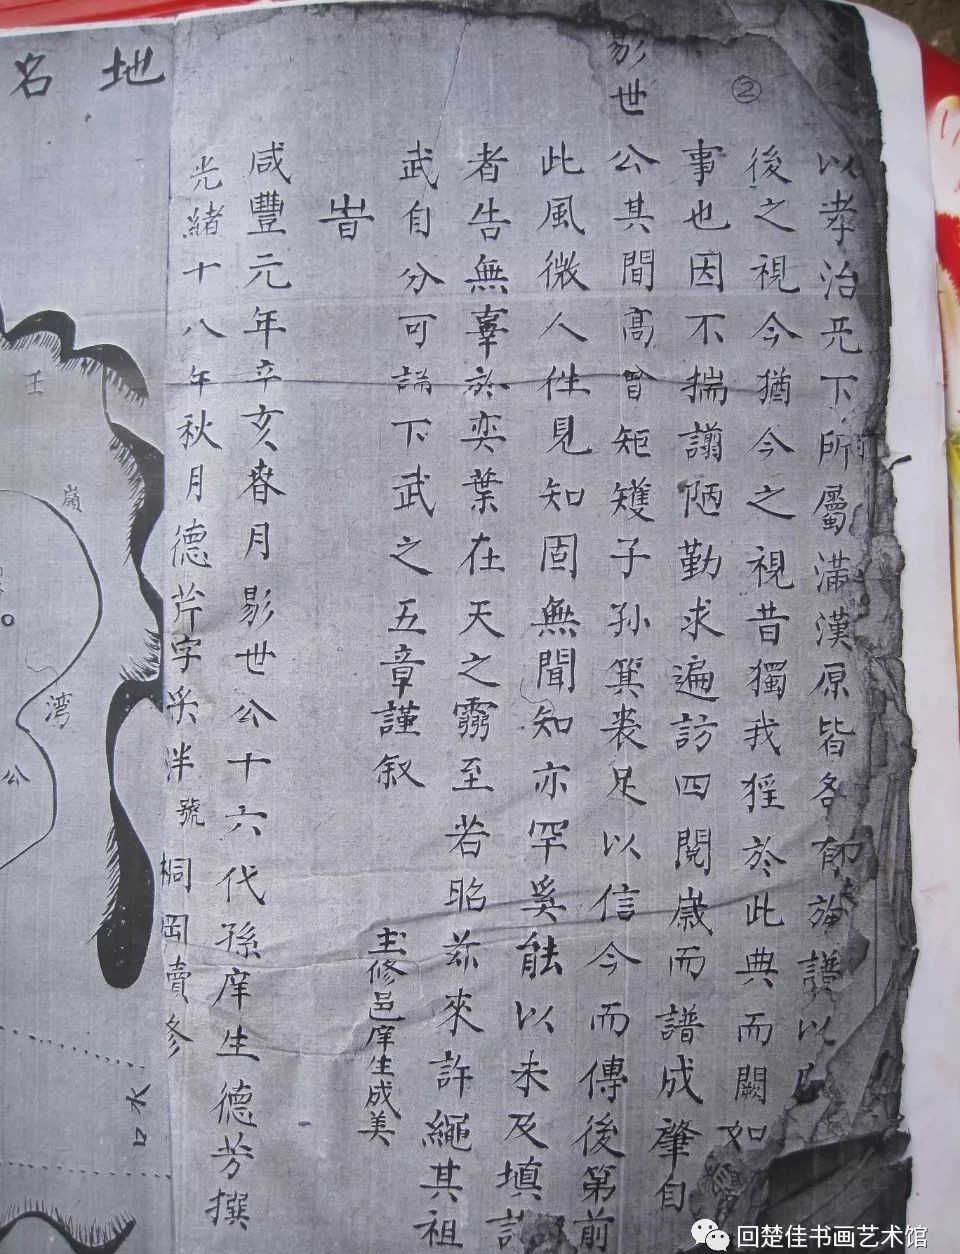 ②
以孝治天下所屬滿漢原皆各
後之視今猶今之視昔獨我于於此典而闕如
事也因不揣譾陋勤求遍訪四閱歲而譜成肇自
彭世公其間高曾矩矱子孫箕裘足以信今而傳後第前
此風微人往見知固無聞知亦罕奚能以未及填
者告無辜於奕葉在天之靈至若昭茲來許繩其祖
武自分可誦下武之五章謹叙
旹
主修邑庠生成美
咸豐元年辛亥春月彭世公十六代孫庠生德芳撰
光緒十八年秋月德芹字采泮號桐岡賣參
地名
王
嶺
湾
公
水口
回楚佳书画艺术馆